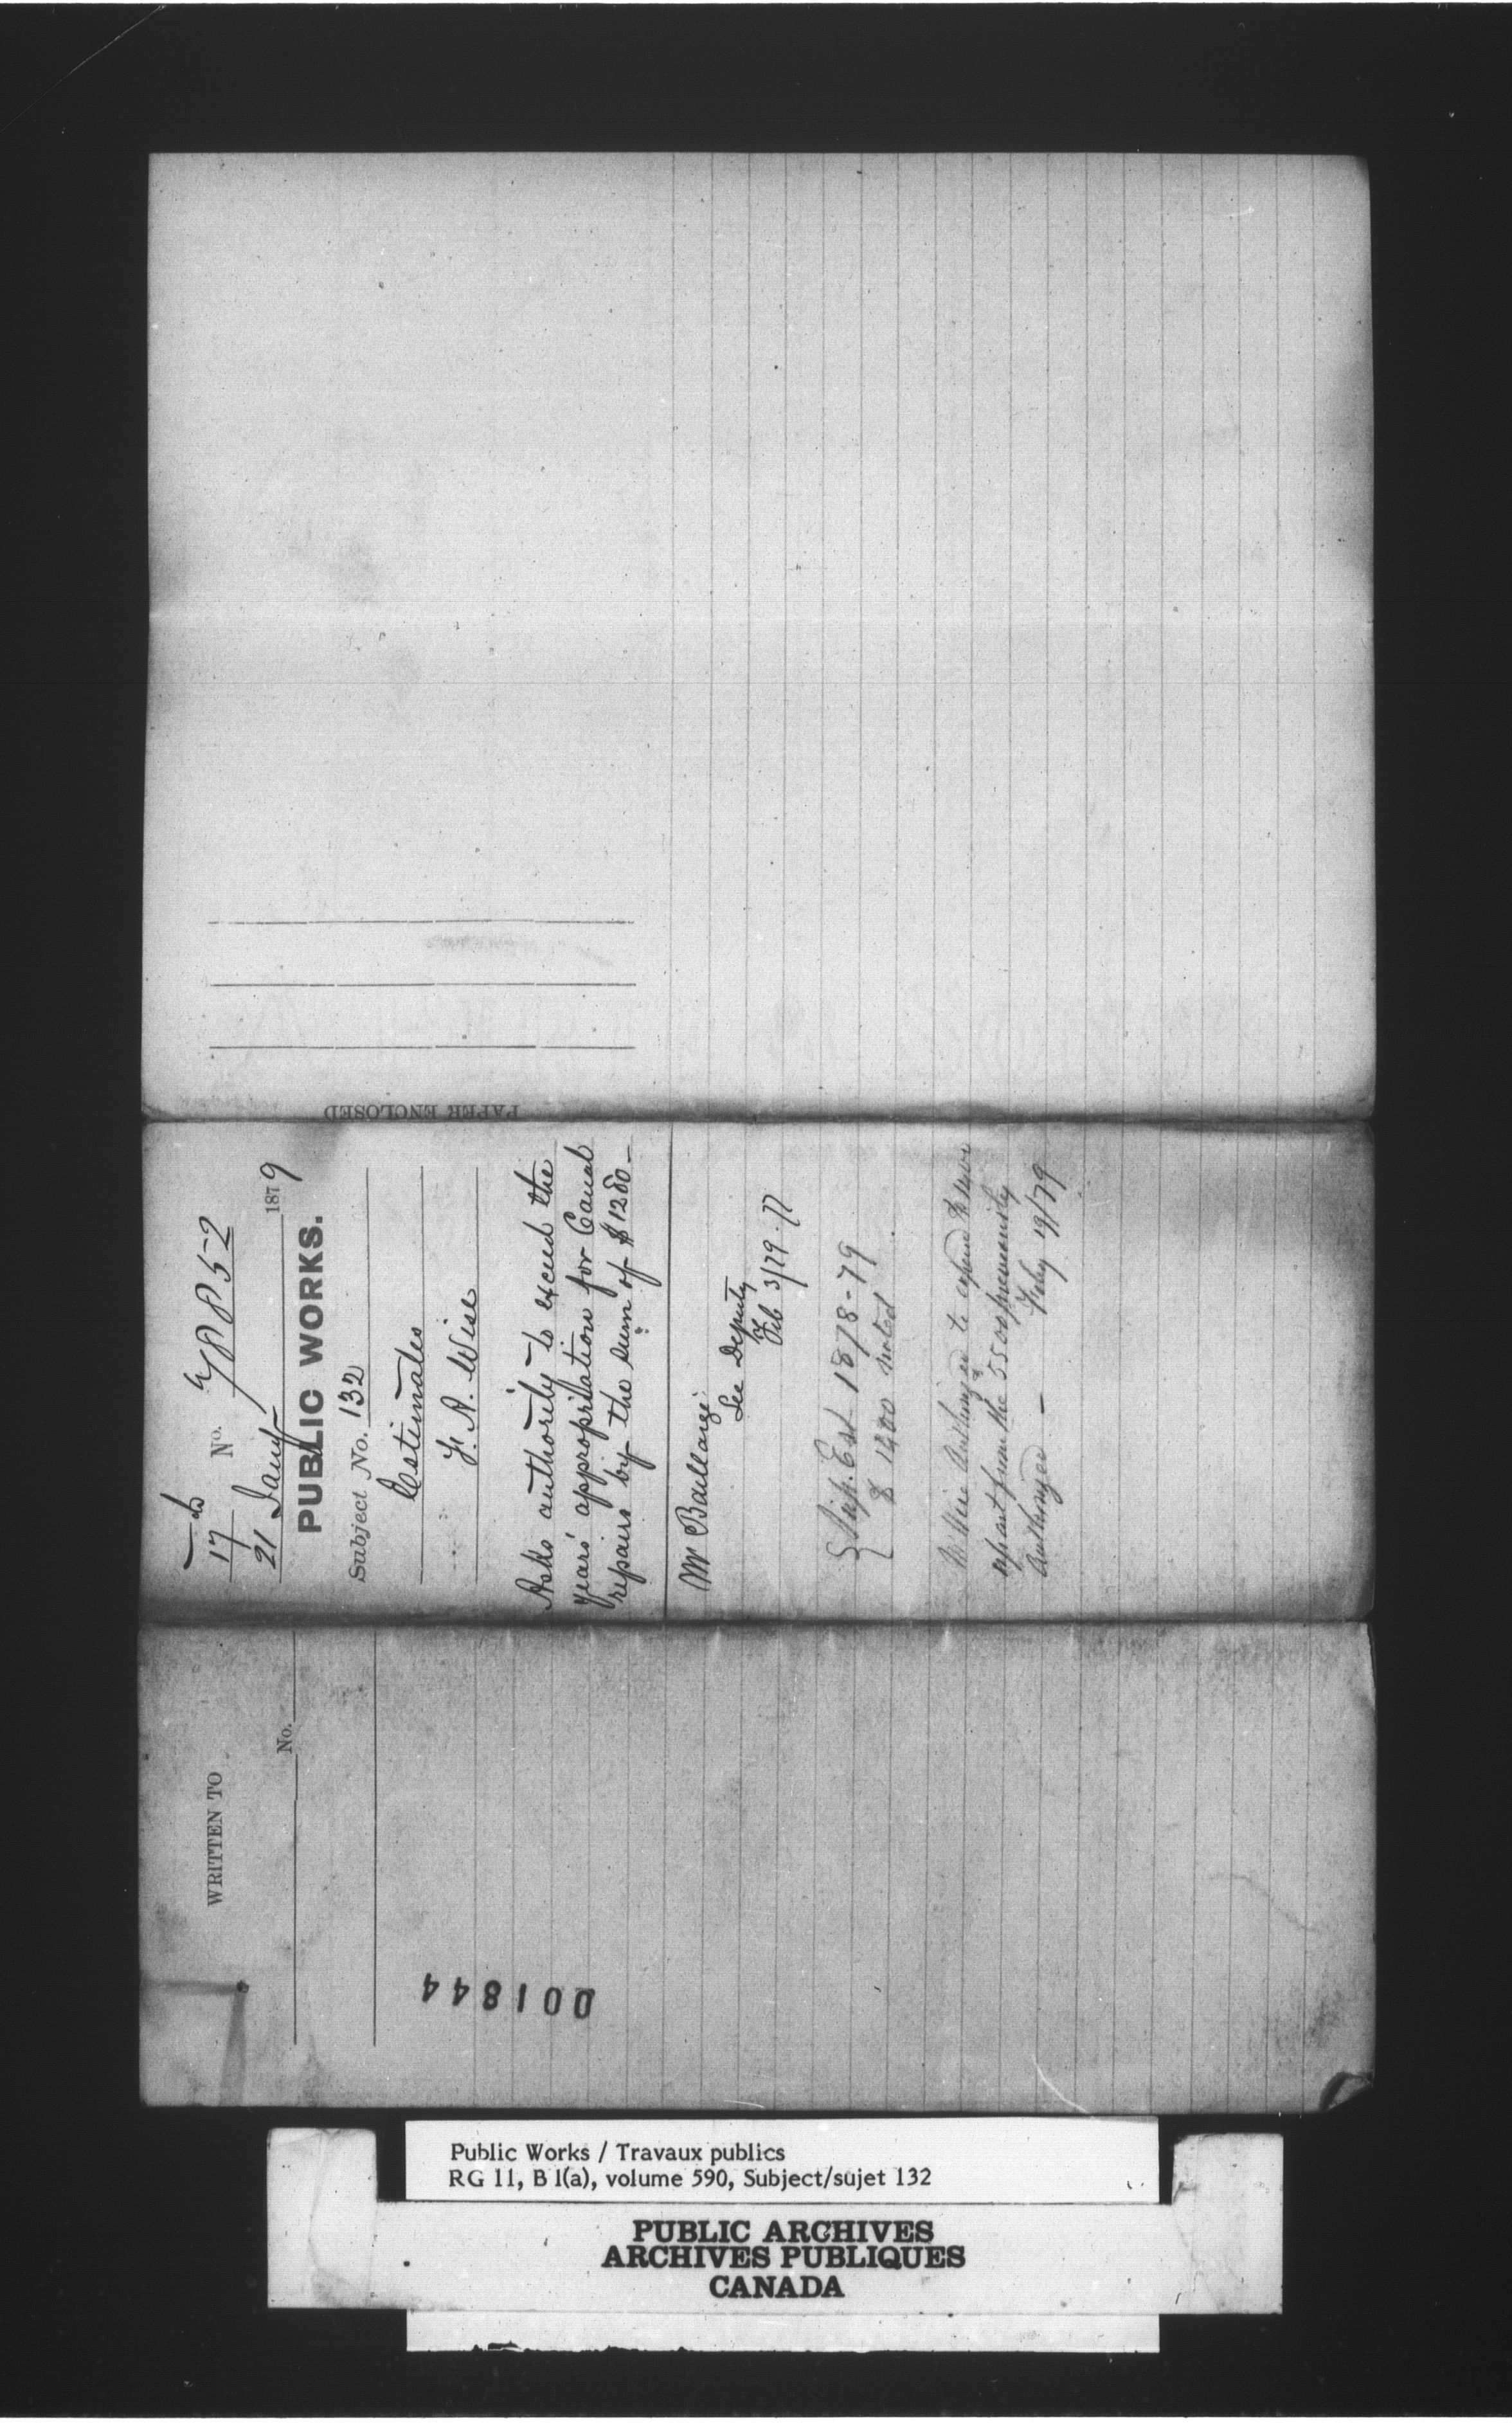 17 No. 78852
21 Jany 1879
PUBLIC WORKS.
Subject No. 132
Estimates
F. A. Wise
Asks authority to exceed the
years' appropriation for Canal
repairs by the sum of $1200—
Mr Baillargé
See Deputy
Feb 3/79
Sup. Est 1878-79
$ 1200 noted
Mr Wise Authorized to expend
apart from the 5500 previously
authorized — Feby 19/79
PAPER ENCLOSED
WRITTEN TO
No.
001844
Public Works / Travaux publics
RG 11, B 1(a), volume 590, Subject/sujet 132
PUBLIC ARCHIVES
ARCHIVES PUBLIQUES
CANADA